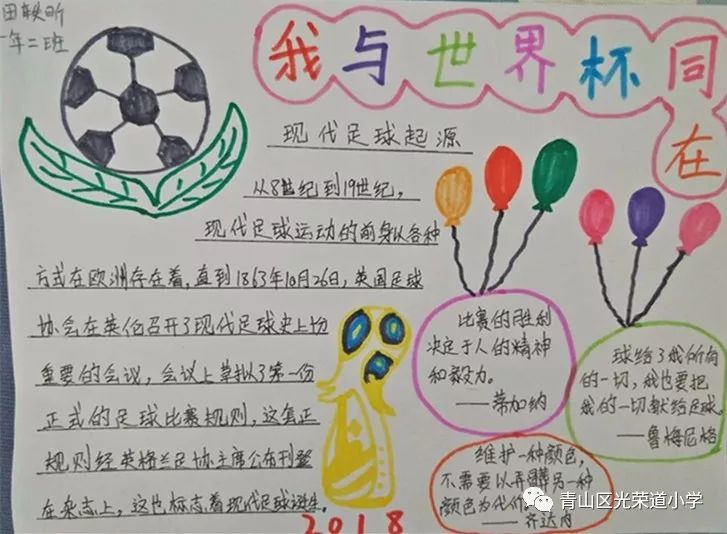 田轶昕
一年二班
我与世界杯同在
现代足球起源
从8世纪到19世纪，
现代足球运动的前身以各种
方式在欧洲存在着，直到1863年10月26日，英国足球
协会在英伦召开了现代足球史上份
重要的会议，会议上草拟了第一份
正式的足球比赛规则，这套正
规则经英格兰足协主席公布刊登
在杂志上，这也标志着现代足球诞生。
比赛的胜利
决定于人的精神
和毅力。
——蒂加纳
球给了我所有
的一切，我也要把
我的一切献给足球
——鲁梅尼格
维护一种颜色，
不需要以弄脏另一种
颜色为代价
——齐达内
2018
青山区光荣道小学